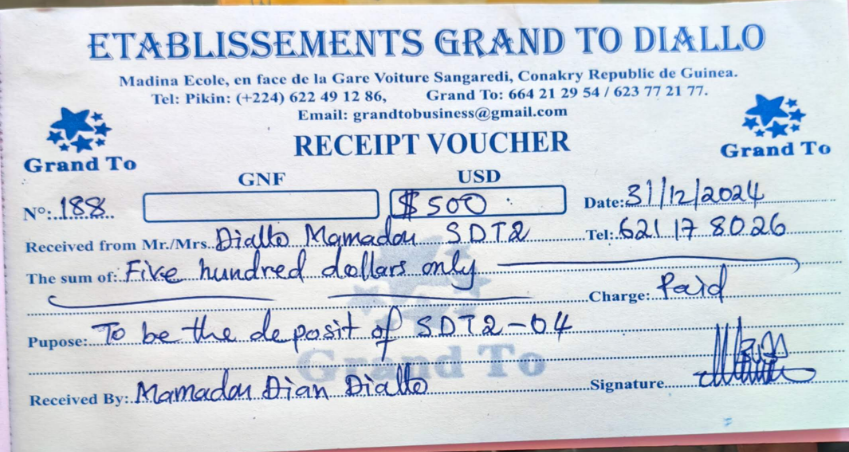 ETABLISSEMENTS GRAND TO DIALLO
Madina Ecole, en face de la Gare Voiture Sangaredi, Conakry Republic de Guinea.
Tel: Pikin: (+224) 622 49 12 86, Grand To: 664 21 29 54 / 623 77 21 77.
Email: grandtobusiness@gmail.com
RECEIPT VOUCHER
Grand To
Grand To
GNF USD
N°: 188 $500 Date: 31/12/2024
Received from Mr./Mrs. Diallo Mamadou SDT2 Tel: 621 17 80 26
The sum of: Five hundred dollars only
Charge: Paid
Pupose: To be the deposit of SDT2-04
Grand To
Received By: Mamadou Dian Diallo Signature